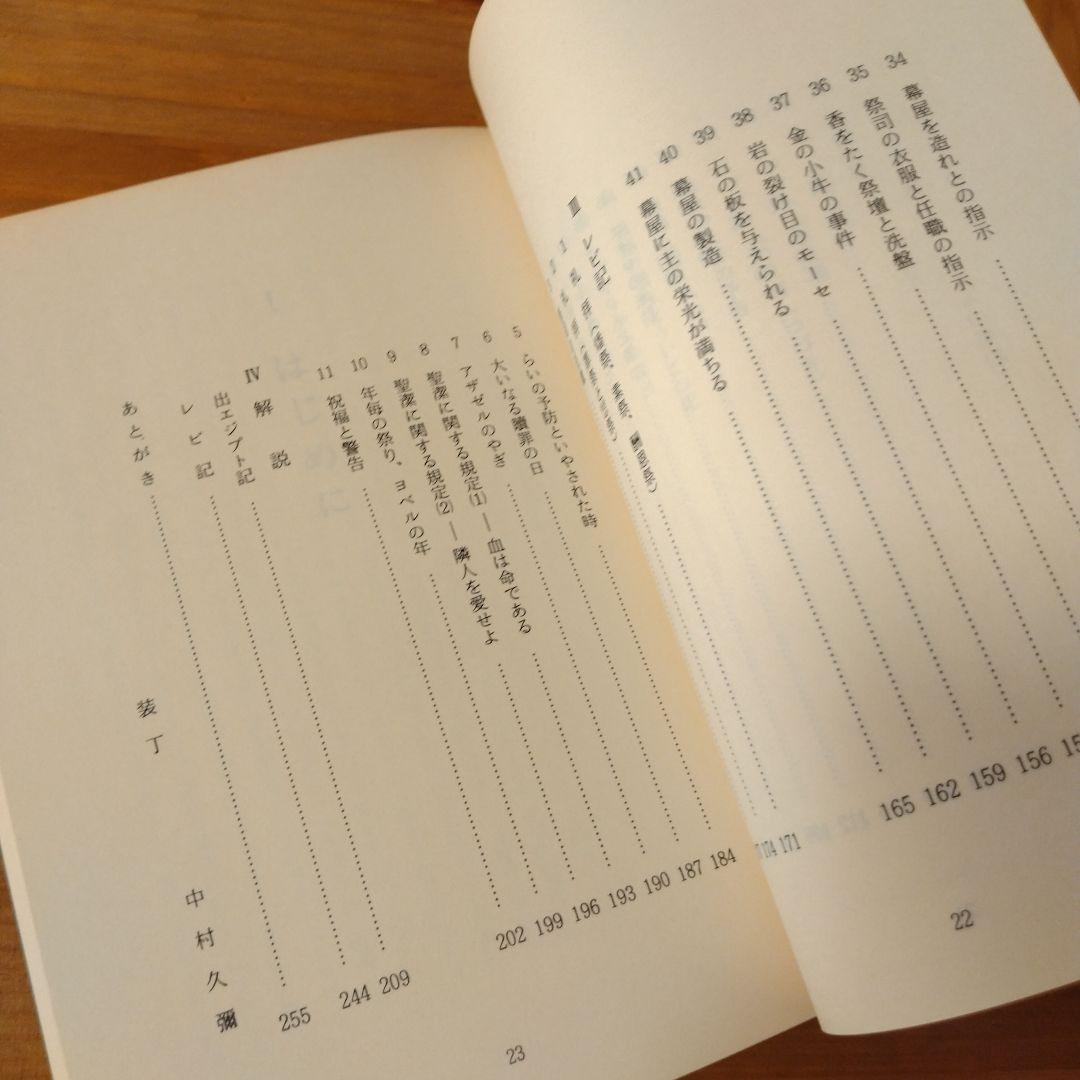 34 幕屋を造れとの指示
35 祭司の衣服と任職の指示
36 香をたく祭壇と洗盤
37 金の小牛の事件 156
38 岩の裂け目のモーセ 159
39 石の板を与えられる 162
40 幕屋の製造
41 幕屋に主の栄光が満ちる 165
Ⅲ レビ記
171
174
22
5 らいの予防といやされた時 184
6 大いなる贖罪の日 187
7 アザゼルのやぎ 190
8 聖潔に関する規定(1)―血は命である 193
9 聖潔に関する規定(2)―隣人を愛せよ 196
10 年毎の祭り、ヨベルの年 199
11 祝福と警告 202
Ⅳ 解説
出エジプト記 209
レビ記 244
あとがき 255
装丁 中村久彌
23